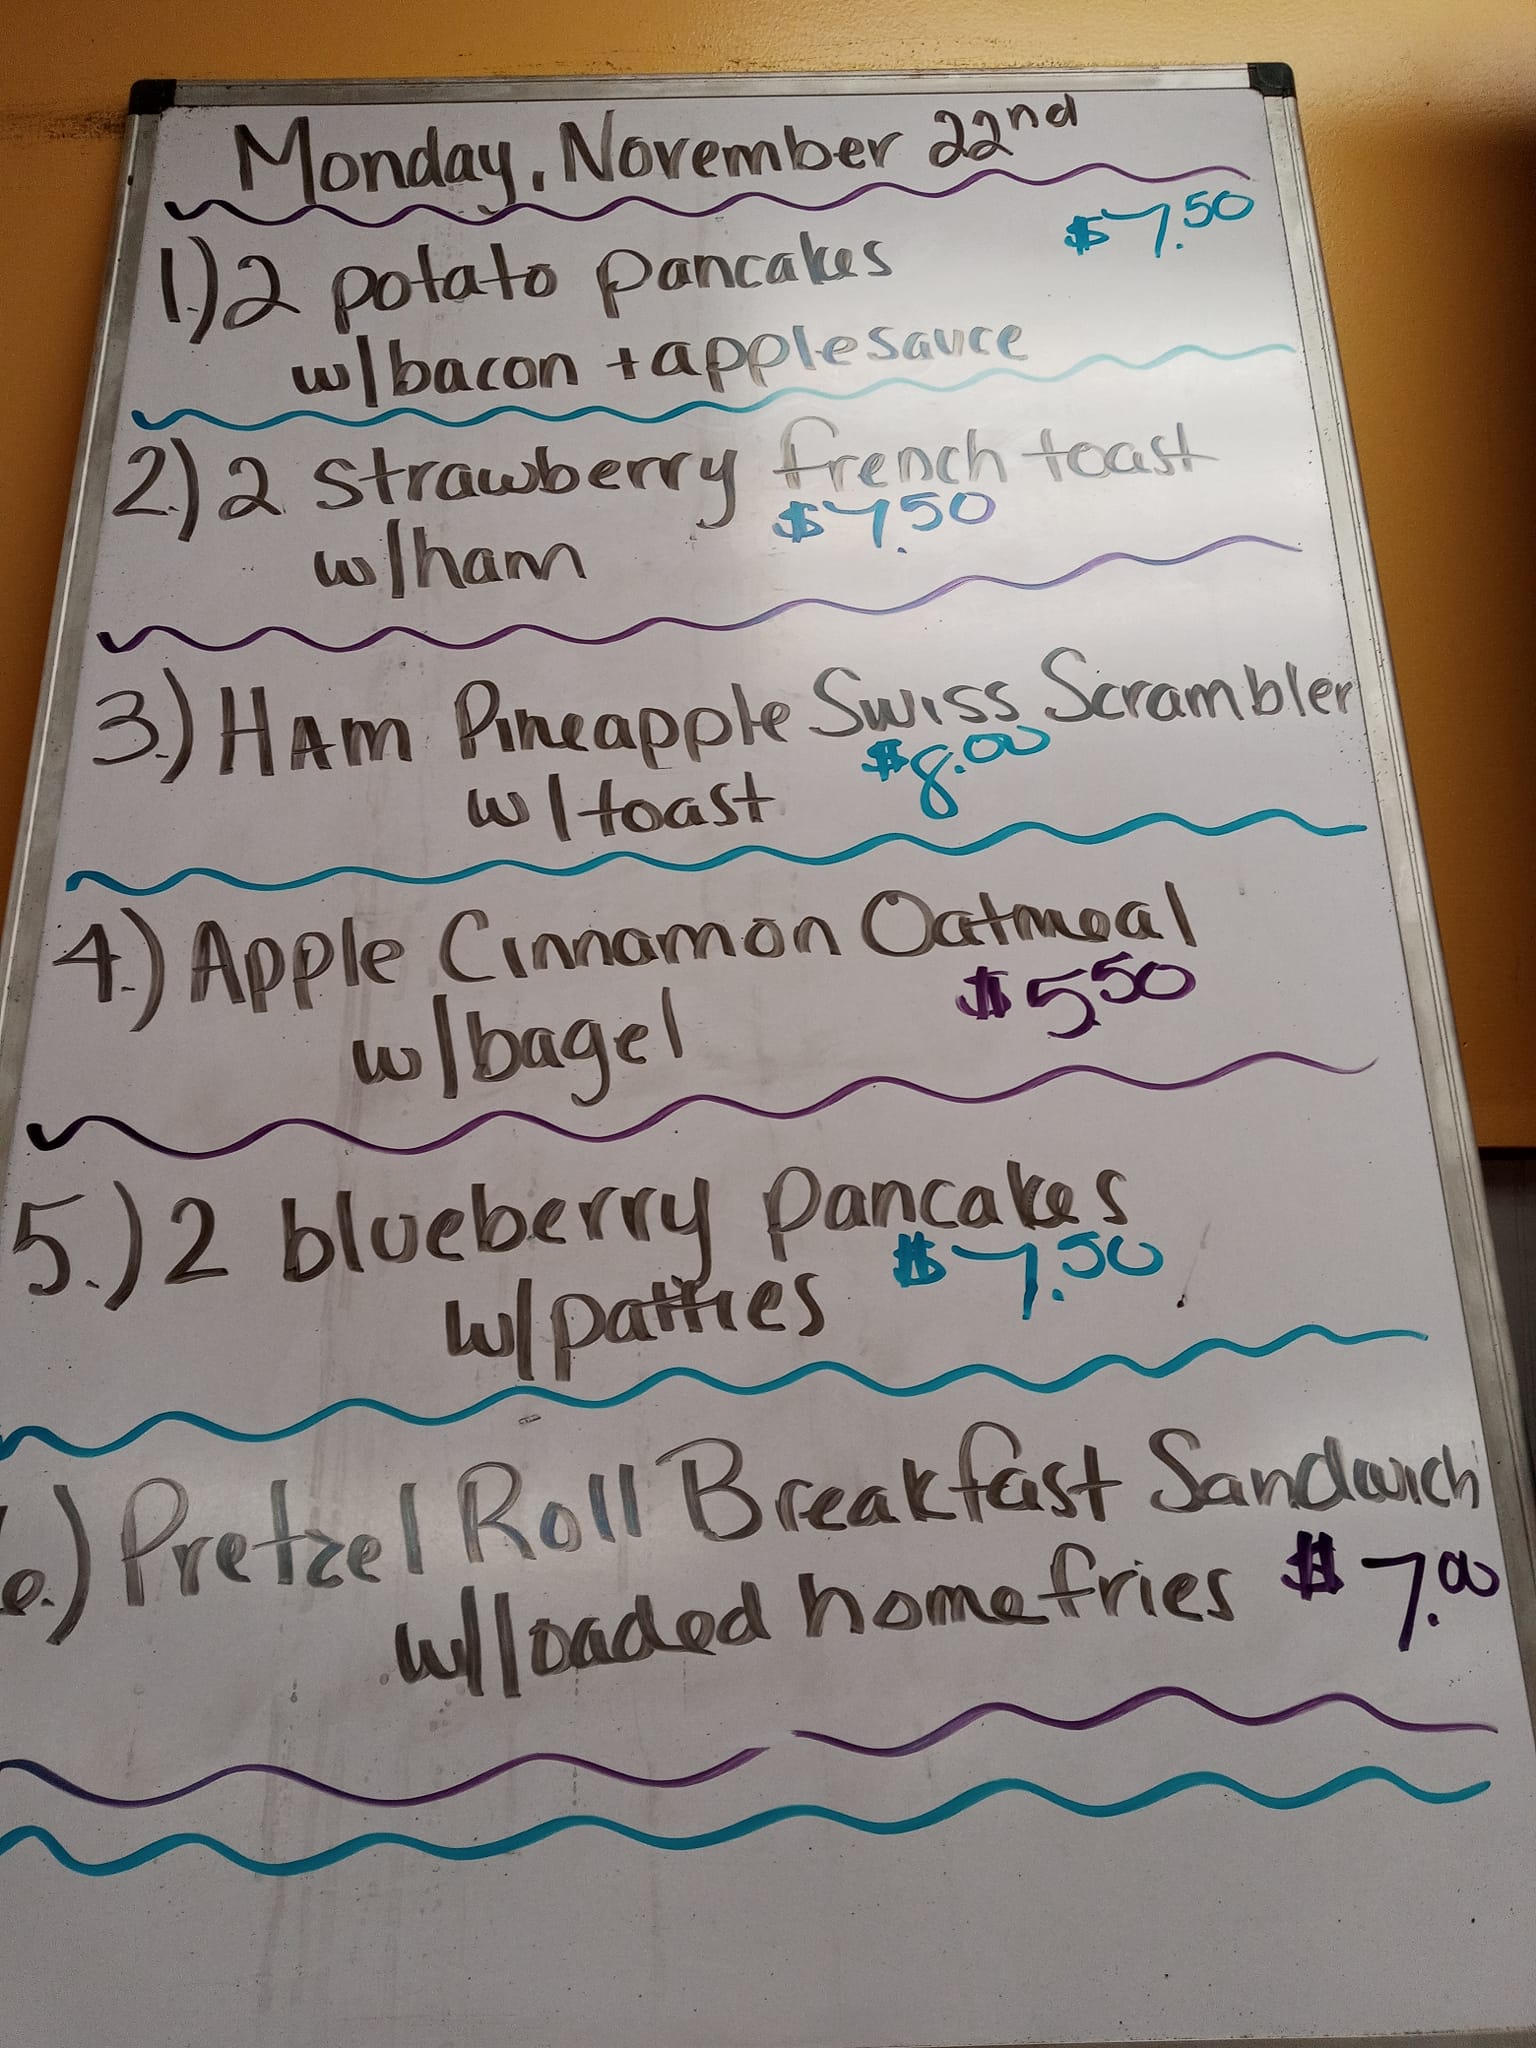 Monday, November 22nd
$7.50
1.) 2 potato pancakes
w/bacon + applesauce
2.) 2 strawberry french toast
$7.50
w/ham
3.) HAm Pineapple Swiss Scrambler
$8.00
w/toast
4.) Apple Cinnamon Oatmeal
$5.50
w/bagel
5.) 2 blueberry pancakes
$7.50
w/patties
6.) Pretzel Roll Breakfast Sandwich
w/loaded homefries $7.00